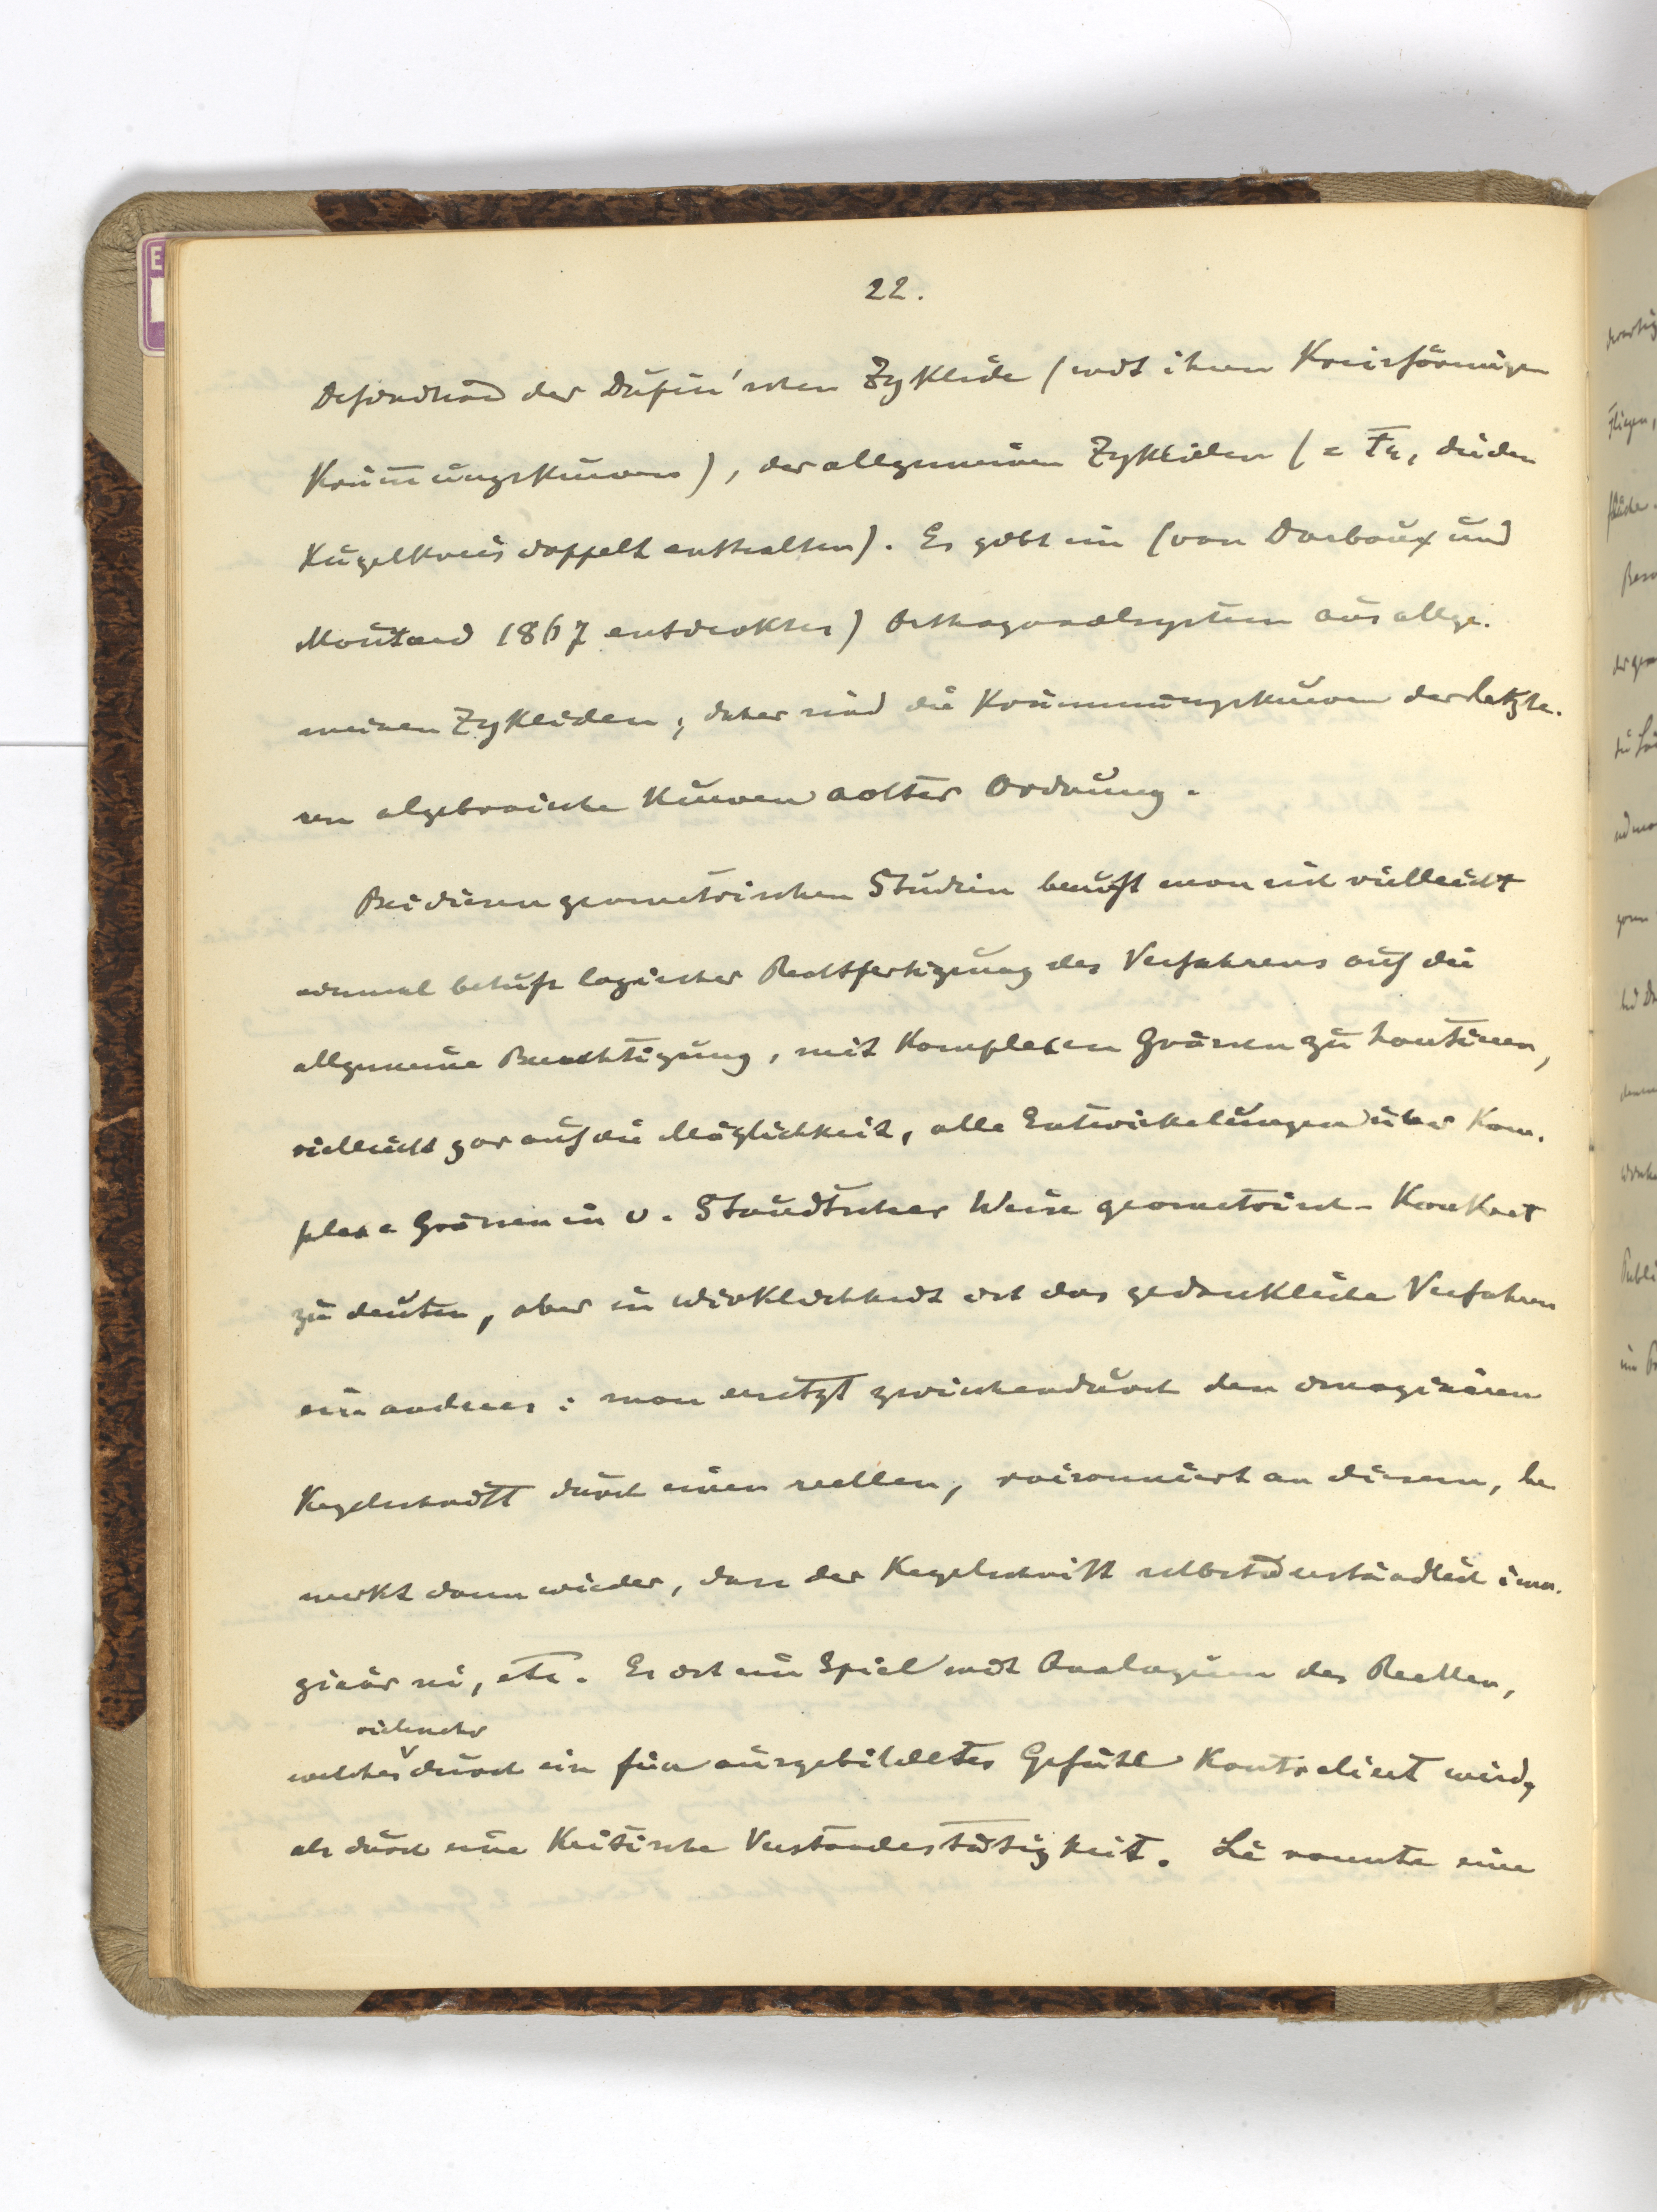 22.
Definition der Dupin'schen Zyklide (mit ihren Kreisförmigen
Krümungskurven), der allgemeinen Zykliden (= F4, die den
Kugelkreis doppelt enthalten). Es gibt ein (von Darboux und
Moutard 1867 entdecktes) Orthogonalsystem aus allge-
meinen Zykliden; daher sind die Krümmungskurven der letzte-
ren algebraische Kurven achter Ordnung.
Bei diesen geometrischen Studien beruft man sich vielleicht
einmal behufs logischer Rechtfertigung des Verfahrens auf die
allgemeine Berechtigung, mit Komplexen Grössen zu hantieren,
vielleicht gar auf die Möglichkeit, alle Entwickelungen über Kom-
plexe Grössen in v. Staudtscher Weise geometrisch-Konkret
zu deuten, aber in Wirklichkeit ist das gedankliche Verfahren
ein anderes: man ersetzt zwischendurch den imaginären
Kegelschnitt durch einen reellen, raisonniert an diesem, be
merkt dann wieder, dass der Kegelschnitt selbstverständlich ima-
ginär sei, etc. Es ist ein Spiel mit Analogien des Reellen,
vielmehr
welches durch ein fein ausgebildetes Gefühl Kontroliert wird,
als durch eine Kritische Verstandestätigkeit. Lie nannte eine